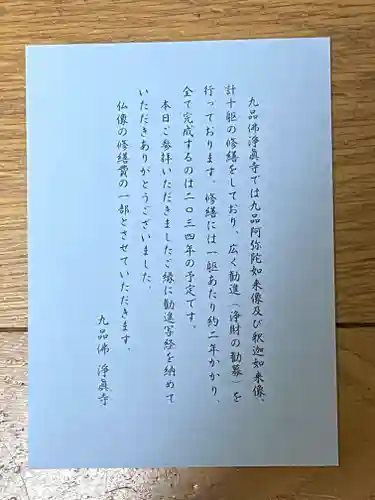 九品佛浄眞寺では九品阿弥陀如来像及び釈迦如来像、
計十躯の修繕をしており、広く勧進（浄財の勧募）を
行っております。修繕には一躯あたり約二年かかり、
全て完成するのは二〇三四年の予定です。
本日ご参拝いただきましたご縁に勧進写経を納めて
いただきありがとうございました。
仏像の修繕費の一部とさせていただきます。
九品佛 浄眞寺